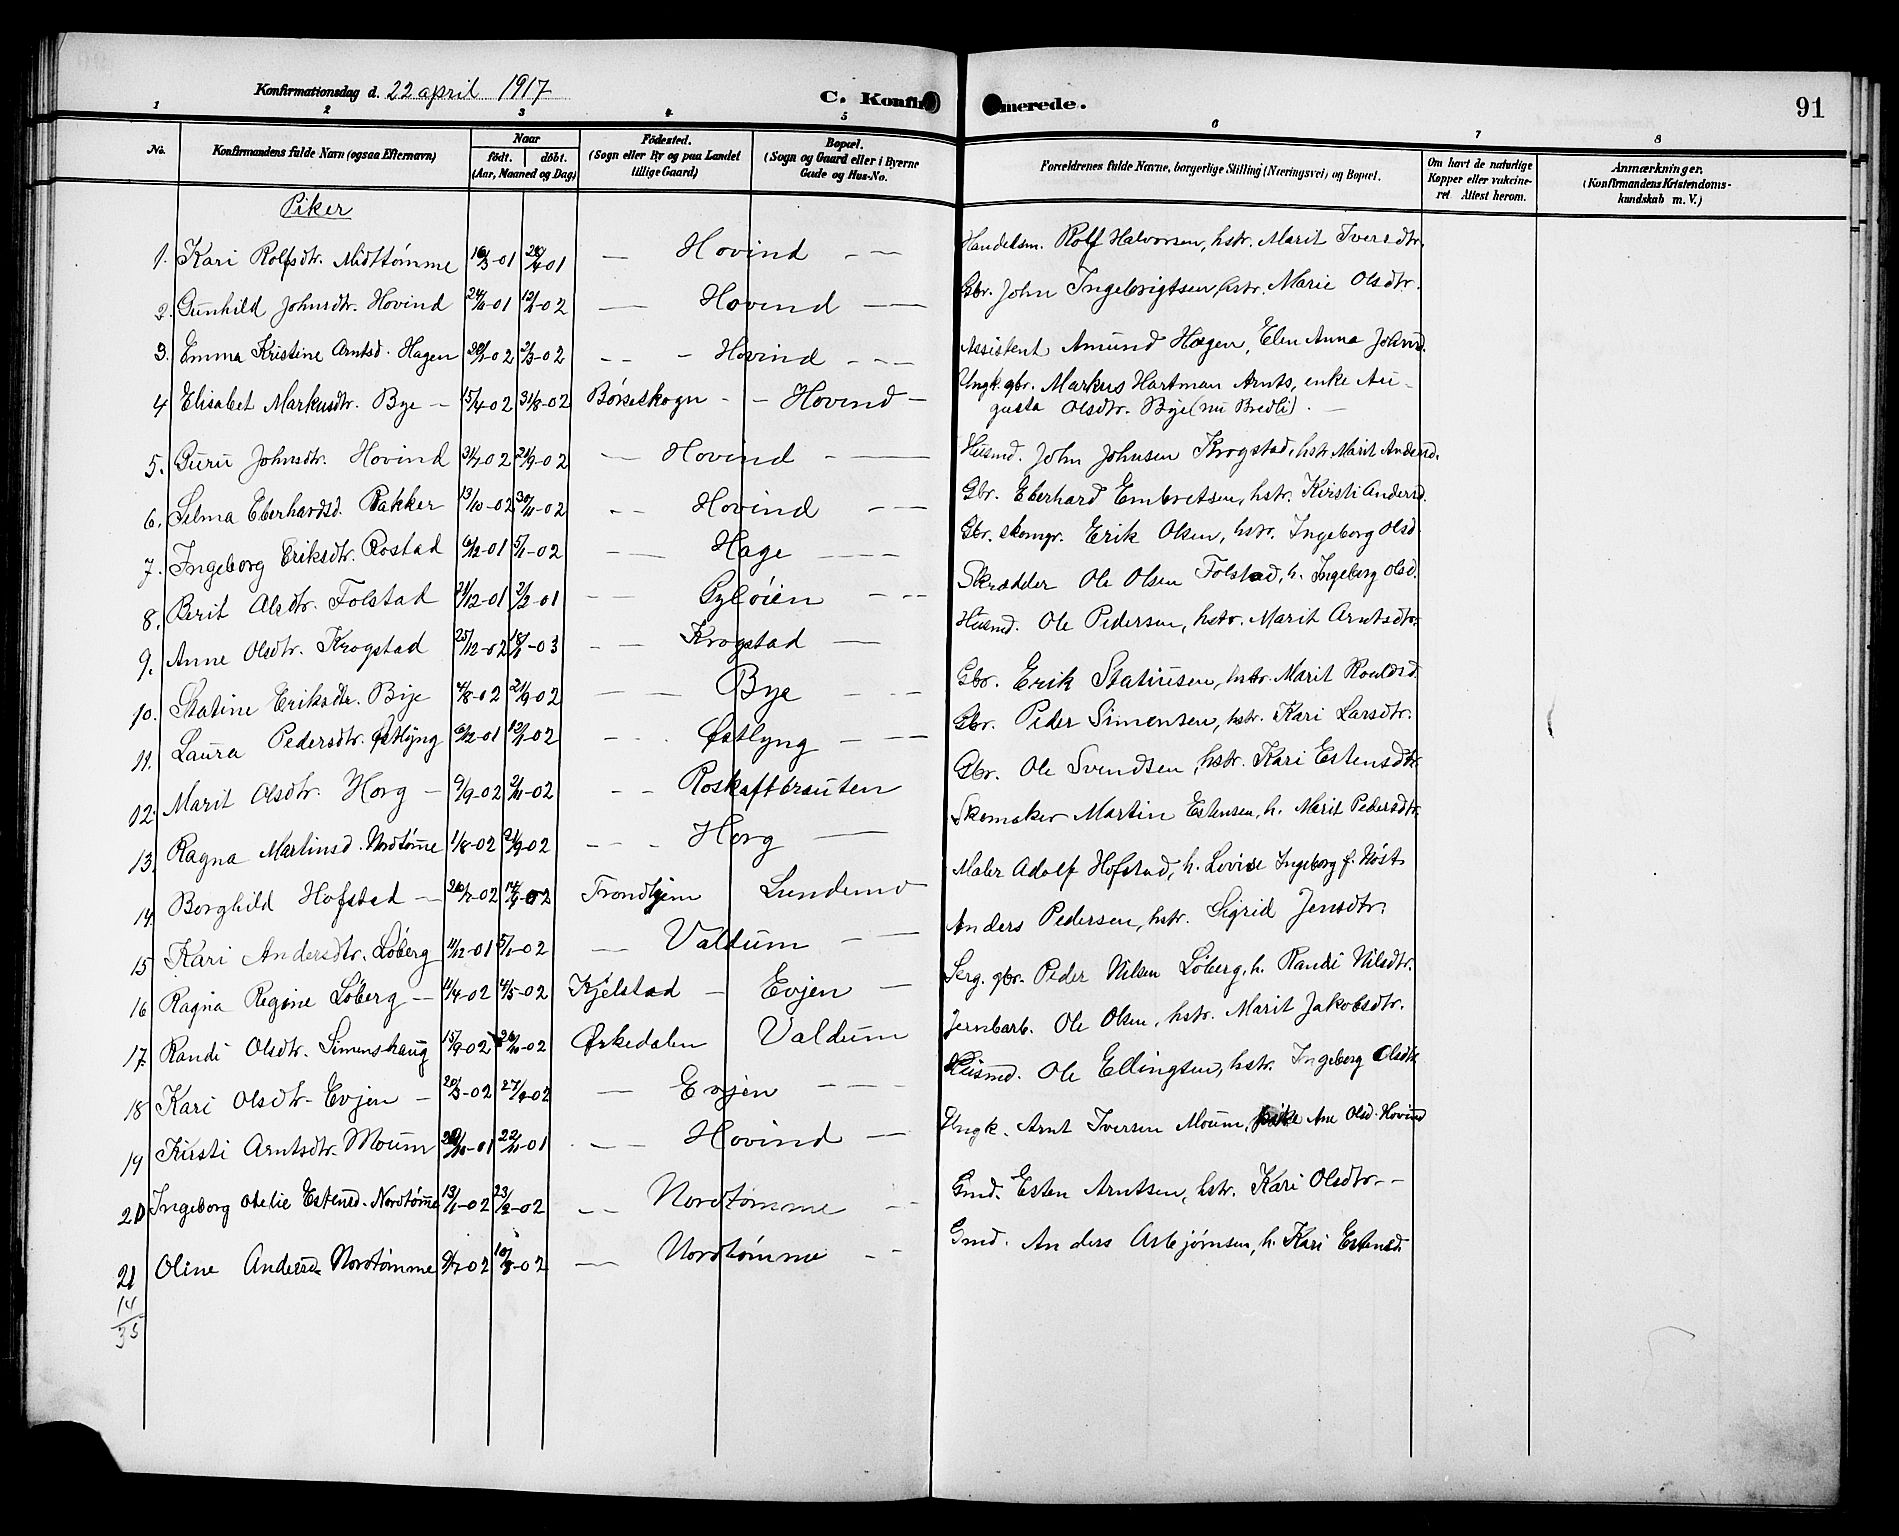 Konfirmationsdag d. 22 april 1917
C. Konfirmerede.
91
1 2 3 4 5 6 7 8
No.
Konfirmandens fulde Navn (ogsaa Efternavn)
Naar
födt. döbt.
(Aar, Maaned og Dag)
Födested.
(Sogn eller By og paa Landet
tillige Gaard)
Bopæl.
(Sogn og Gaard eller i Byerne
Gade og Hus-No.
Forældrenes fulde Navne, borgerlige Stilling (Næringsvei) og Bopæl.
Om havt de naturlige
Kopper eller vakcine-
ret Attest herom.
Anmærkninger.
(Konfirmandens Kristendoms-
kundskab m. V.)
Piker
1. Kari Rolfsdtr. Midttømme 16/3-01 28/4-01 — Hovind — — Handelsm. Rolf Halvorsen, hstr. Marit Iversdtr.
2. Gunhild Johnsdtr. Hovind 24/11-01 12/1-02 — Hovind — — Gbr. John Ingebrigtsen, hstr. Marie Olsdtr.
3. Emma Kristine Arntsd. Hagen 30/1-02 2/3-02 — — Hovind — — Assistent Amund Hagen, Elen Anna Johnsd.
4 Elisabet Markusdtr. Bye — 15/4-02 31/8-02 Børseskogn - - Hovind — Ungk. gbr. Markus Hartman Arnts, enke Au-
gusta Olsdtr. Bye (nu Bredli). —
5. Guru Johnsdtr. Hovind 31/7-02 21/9-02 — Hovind — — Husmd. John Johnsen Krogstad, hstr Marit Andersd.
6. Selma Eberhardsd. Bakker 13/10-02 30/11-02 — — Hovind — — Gbr. Eberhard Embretsen, hstr. Kirsti Andersd.
7. Ingeborg Eriksdtr. Rostad 6/12-01 5/1-02 — — Hage — — Gbr. skomgr. Erik Olsen, hstr. Ingeborg Olsd.
8. Berit Olsdtr. Folstad 21/12-01 2/2-01 — — Gyløien — — Skrædder Ole Olsen Folstad, h. Ingeborg Olsd.
9. Anne Olsdtr. Krogstad 25/12-02 18/1-03 — — Krogstad — Husmd. Ole Pedersen, hstr. Marit Arntsdtr.
10. Statine Eriksdtr. Bye 4/8-02 21/9-02 — — Bye — — Gbr. Erik Statinsen, hstr. Marit Roaldsd.
11. Laura Pedersdtr. Østlyng 6/12-01 12/1-02 — — Østlyng — — Gbr. Peder Simensen, hstr. Kari Larsdtr.
12. Marit Olsdtr. Horg — 9/9-02 2/11-02 — — Roskaftbrauten Gbr. Ole Svendsen, hstr. Kari Estensdtr.
13. Ragna Martinsd. Nordtømme 1/8-02 21/9-02 — — Horg — Skomaker Martin Estensen, h. Marit Pedersdtr.
14. Borghild Hofstad — 20/2-02 14/9-02 Trondhjem Lundemo Maler Adolf Hofstad, h. Lovise Ingeborg f. Nøst.
15 Kari Andersdtr. Løberg 11/12-01 5/1-02 — Valdum — — Anders Pedersen, hstr. Sigrid Jensdtr.
16 Ragna Regine Løberg — 11/4-02 4/5-02 Kjelstad — Evjen — Serg. gbr. Peder Nilsen Løberg, h. Randi Nilsdtr.
17. Randi Olsdtr. Simenshaug 15/9-02 26/10-02 Ørkedalen Valdum Jernbarb. Ole Olsen, hstr. Marit Jakobsdtr.
18 Kari Olsdtr. Evjen — 20/3-02 27/4-02 — Evjen — — Husmd. Ole Ellingsen, hstr. Ingeborg Olsdtr
19 Kirsti Arntsdtr. Moum 20/10-01 22/11-01 — — Hovind — Ungk. Arnt Iversen Moum, pike Ane Olsd. Hovind
20 Ingeborg Otelie Estensd. Nordtømme 13/1-02 23/2-02 — — Nordtømme — Gmd. Esten Arntsen, hstr. Kari Olsdtr. —
21 Oline Andersd. Nordtømme 9/7-02 10/8-02 — Nordtømme — — Gmd. Anders Asbjørnsen, h. Kari Estensd.
14
35